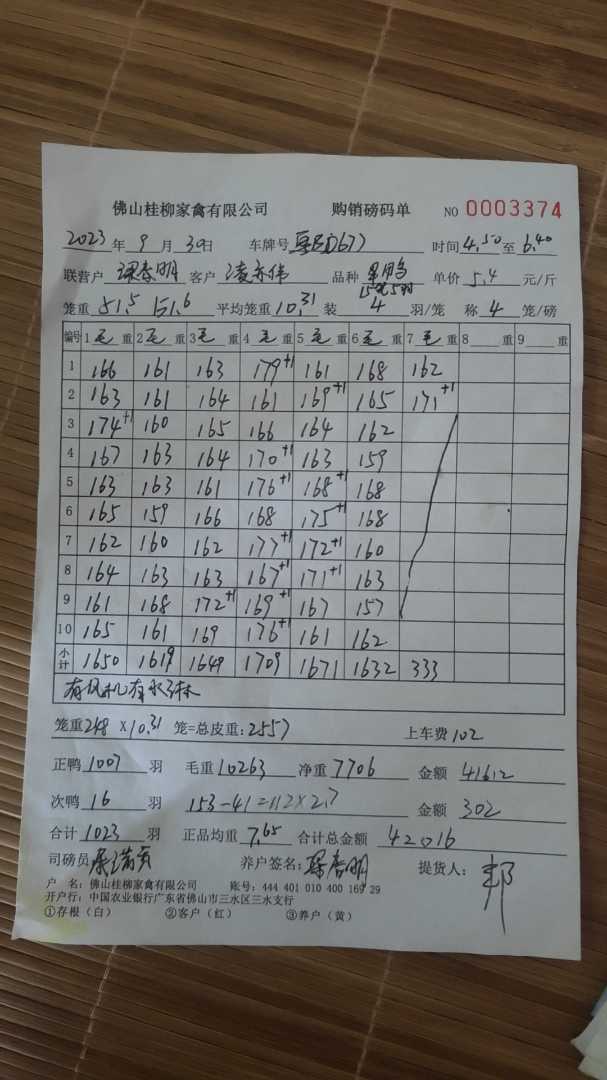 佛山桂柳家禽有限公司 购销磅码单 NO 0003374
2023年 9 月 30日 车牌号 D677 时间 4.50 至 6.40
联营户 客户 品种 单价 5.4 元/斤
笼重 51.5 51.6 平均笼重 10.31 装 4 羽/笼 称 4 笼/磅
编号 1 毛 重 2 毛 重 3 毛 重 4 毛 重 5 毛 重 6 毛 重 7 毛 重 8 重 9 重
1 166 161 163 179+1 161 168 162
2 163 161 164 161 169+1 165 171+1
3 174+1 160 165 166 164 162
4 167 163 164 170+1 163 159
5 163 163 161 176+1 168+1 168
6 165 159 166 168 175+1 168
7 162 160 162 177+1 172+1 160
8 164 163 163 167+1 171+1 163
9 161 168 172+1 169+1 167 157
10 165 161 169 176+1 161 162
小计 1650 1619 1649 1709 1671 1632 333
有风机有水
笼重 248 X10.31 笼=总皮重:2557 上车费 102
正鸭 1007 羽 毛重 10263 净重 7706 金额 41612
次鸭 16 羽 153-41=112X2.7 金额 302
合计 1023 羽 正品均重 7.65 合计总金额 42016
司磅员 养户签名: 提货人: 邦
户 名: 佛山桂柳家禽有限公司 账号: 444 401 010 400 169 29
开户行: 中国农业银行广东省佛山市三水区三水支行
①存根(白) ②客户(红) ③养户(黄)